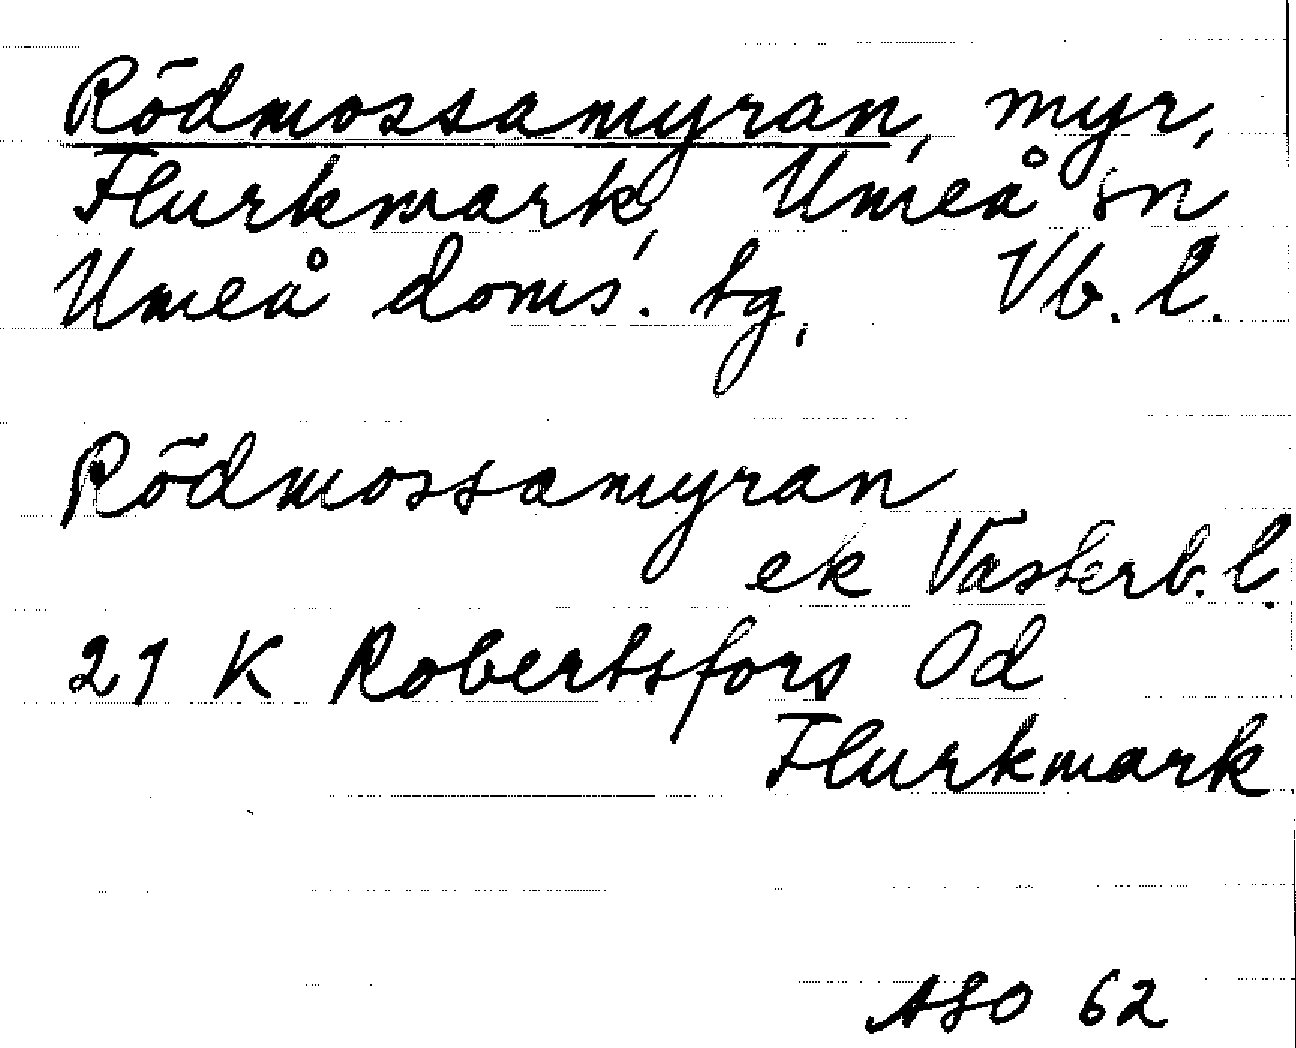 Rödmossamyran, myr,
Flurkmark, Umeå sn
Umeå doms. tg, Vb. l.
Rödmossamyran
ek Västerb. l.
21 K Robertsfors 0d
Flurkmark
ASO 62